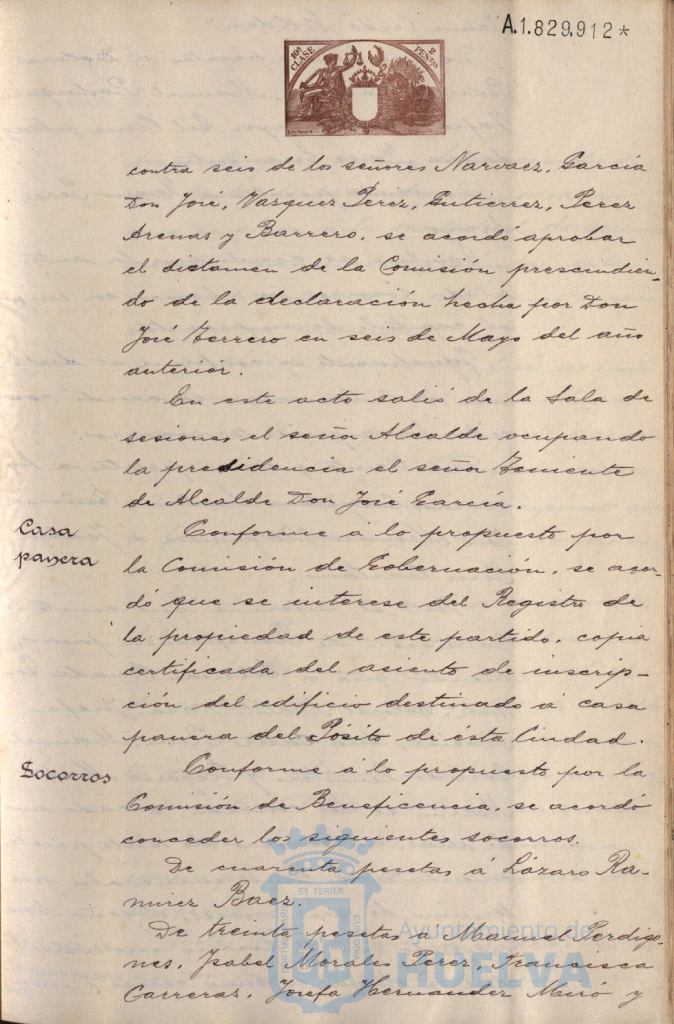 A.1.829.912*
10ª CLASE
2 PESETAS
contra seis de los señores Narvaez, García
Don José, Vazquez Perez, Gutierrez, Perez
Arenas y Barrero, se acordó aprobar
el dictamen de la Comisión prescindien-
do de la declaración hecha por Don
José Terrero en seis de Mayo del año
anterior.
En este acto salió de la Sala de
sesiones el señor Alcalde ocupando
la presidencia el señor Teniente
de Alcalde Don José García.
Casa
panera
Conforme á lo propuesto por
la Comisión de Gobernación, se acor-
dó que se interese del Registro de
la propiedad de este partido, copia
certificada del asiento de inscrip-
ción del edificio destinado á casa
panera del Pósito de ésta Ciudad.
Socorros
Conforme á lo propuesto por la
Comisión de Beneficencia, se acordó
conceder los siguientes socorros.
De cuarenta pesetas á Lázaro Ra-
mirez Baez.
De treinta pesetas a Manuel Perdigo-
nes, Isabel Morales Perez, Francisca
Carreras, Josefa Hernandez Miró y
ET TERRÆ
Ayuntamiento de
HUELVA